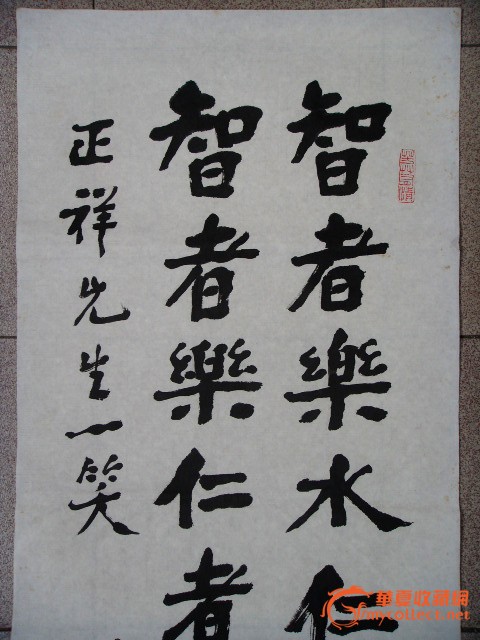 智者樂水仁
智者樂仁者
正祥先生一笑
華夏收藏網
mycollect.net